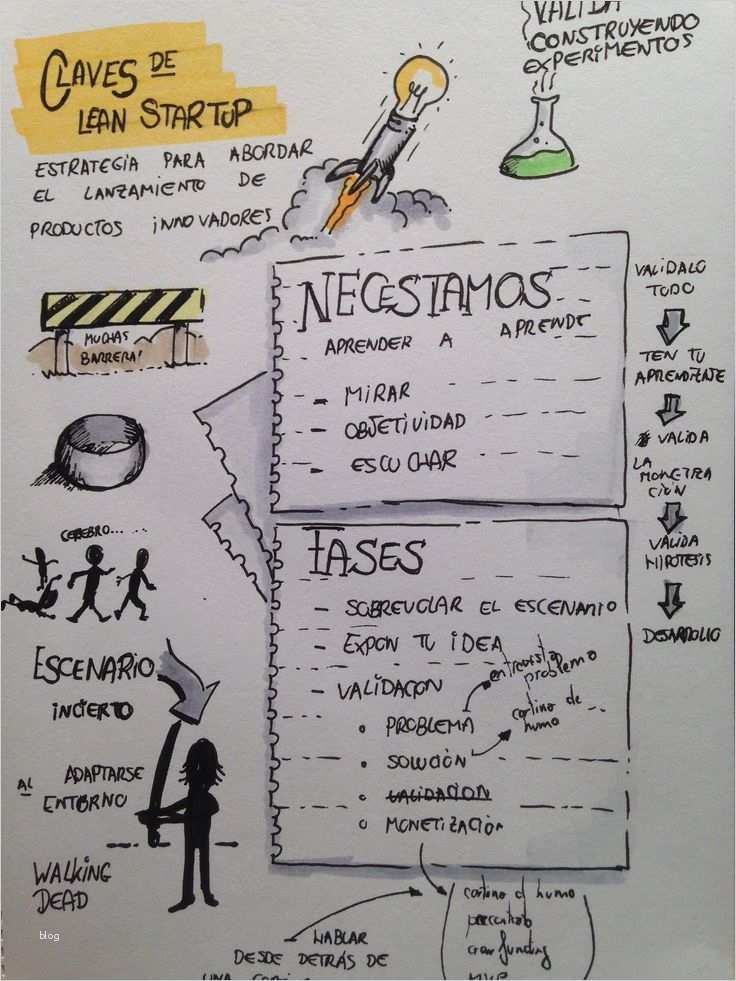 CLAVES DE
LEAN STARTUP
ESTRATEGIA PARA ABORDAR
EL LANZAMIENTO DE
PRODUCTOS INNOVADORES
VALIDA
CONSTRUYENDO
EXPERIMENTOS
MUCHAS
BARRERA!
CEREBRO.....
ESCENARIO
INCIERTO
ADAPTARSE
AL ENTORNO
WALKING
DEAD
blog
NECESTAMOS
APRENDER A APRENDE
- MIRAR
- OBJETIVIDAD
- ESCUCHAR
FASES
- SOBREVOLAR EL ESCENARIO
- EXPON TU IDEA
- VALIDACION
PROBLEMA
entrevista
problema
SOLUCIÓN
cortina de
humo
VALIDACION
MONETIZACIÓN
VALIDALO
TODO
TEN TU
APRENDIZAJE
VALIDA
LA
MONETIZA
CIÓN
VALIDA
HIPOTESIS
DESARROLLO
HABLAR
DESDE DETRÁS DE
UNA
cortina d humo
crowfunding
MVP